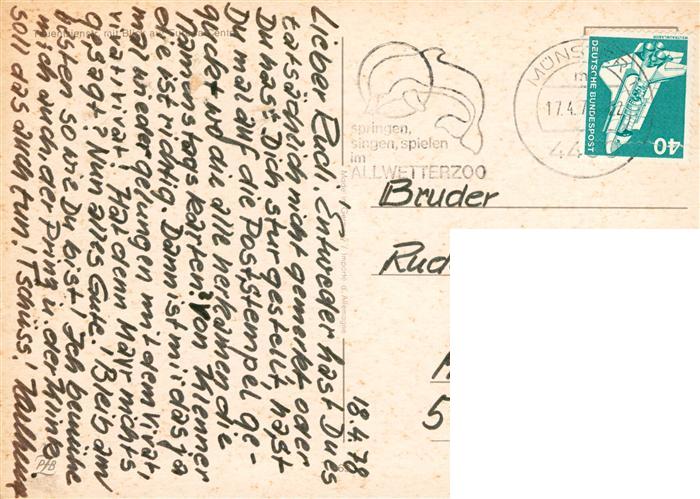 18.4.78
Lieber Rudi, Entweder hast Du es
tatsächlich nicht gemerkt oder
Du hast Dich stur gestellt, hast
Du mal auf die Poststempel ge-
guckt wo die alle herkamen die
Namenstagskarten? Von Kienner
eine ist richtig. Dann ist mir das ja
mal wieder gelungen mit dem Vivat,
vivat vivat. Hat denn Mayr nichts
gesagt? Nun alles Gute! Bleib am
besten so wie Du bist! Ich bemühe
mich auch der Prinz i. der Klinke
soll das auch tun! Tschüss!
springen,
singen, spielen
im
ALLWETTERZOO
MÜNS
17.4.7
44
DEUTSCHE BUNDESPOST
WELTRAUMLABOR
40
Bruder
Rud
5
PfB